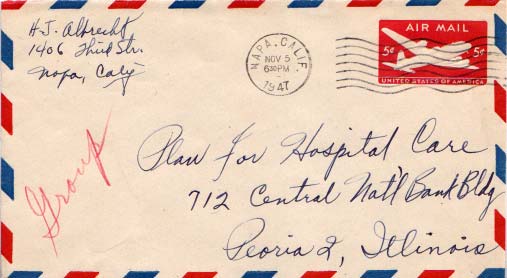 H.J. Albrecht
1406 Third Str.
Napa, Calif
NAPA, CALIF.
NOV 5
6 30 PM
1947
AIR MAIL
5¢ 5¢
UNITED STATES OF AMERICA
Group
Plan For Hospital Care
712 Central Nat'l Bank Bldg
Peoria 2, Illinois